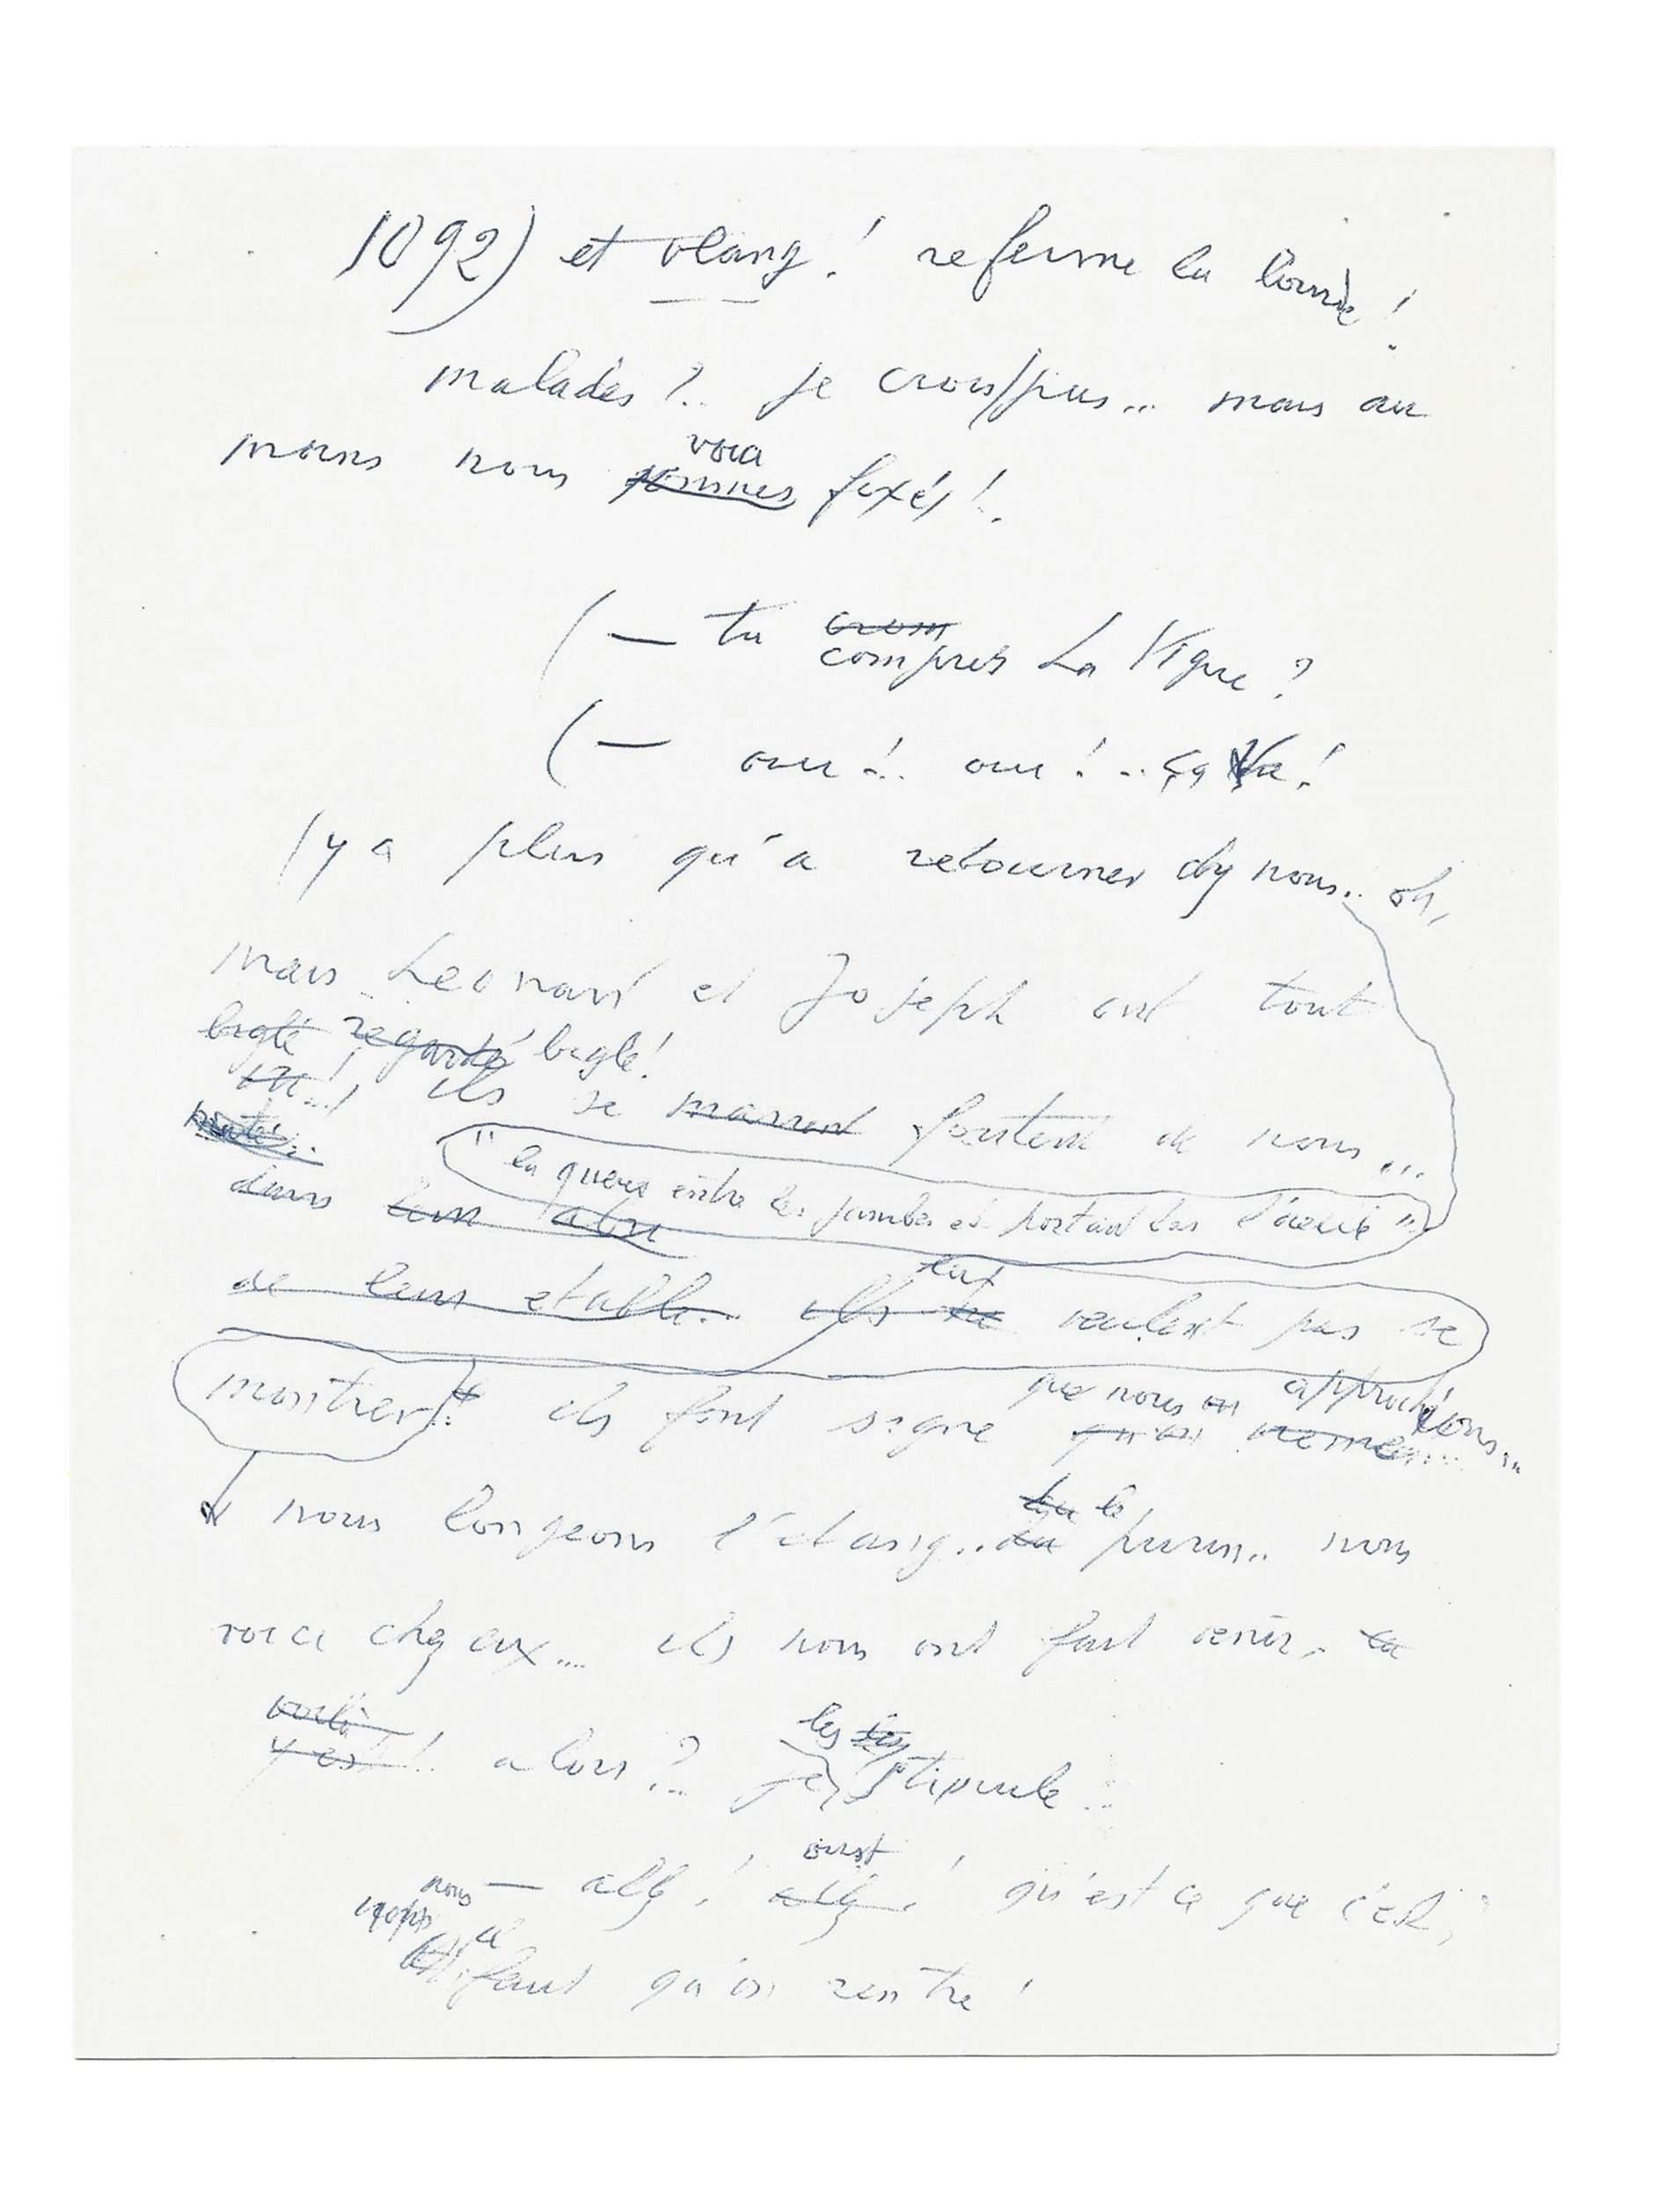 1092) et vlang! referme la lourde!
malades?.. je crois pas... mais au
voici
moins nous sommes fixés!.
(— tu crois
compris La Vigue?
(— oui!.. oui!.. ça va!
y a plus qu'à retourner chez nous.. oh,
mais Leonard et Joseph ont tout
biglé regardé biglé!
ils se marrent foutent de nous...
"la queue entre les jambes et portant bas l'oreille"
dans leur
de leur etable.. ils veulent pas se
que nous approchions...
montrer!.. ils font signe qu'on vienne...
le
nous longeons l'etang.. purin.. nous
voici chez eux.... ils nous ont fait venir..
voilà
yes!! alors?.. je stipule..
les
oust
— allez! allez! qu'est ce que c'est?
nous
il
faut qu'on rentre!